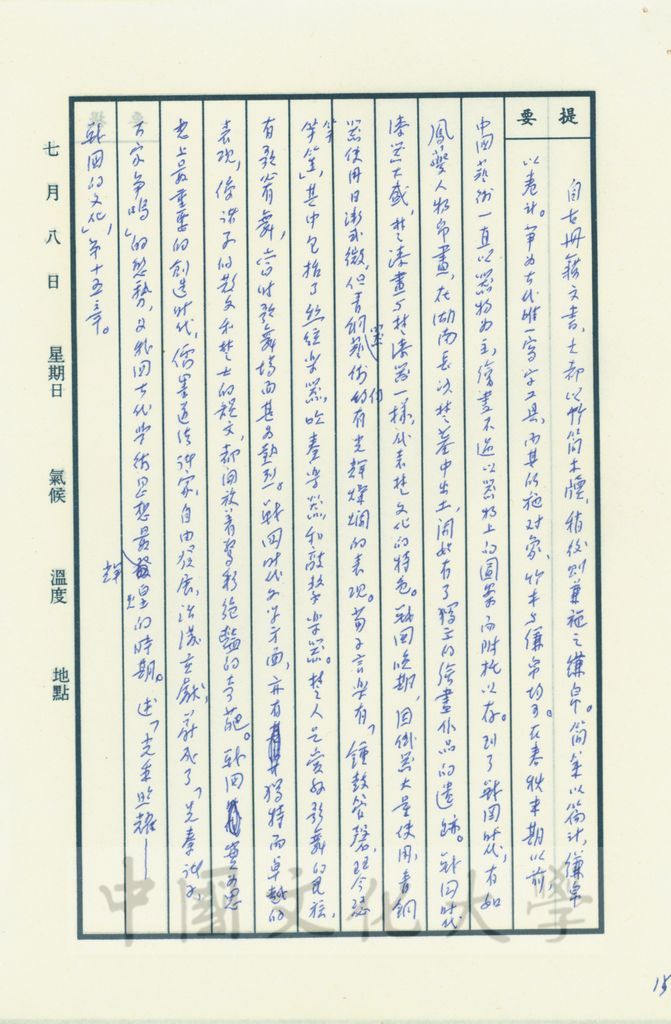 提要
自古冊籍文書，大都以竹簡木牘，稍後則兼施之縑帛。簡策以篇計，縑帛
以卷計。筆為古代唯一寫字工具，而其所施对象，竹木与縑帛均可。在春秋末期以前，
中国藝術一直以器物为主，繪畫不过以器物上的圖案而附托以存。到了戰国时代，有如
鳳夔人物帛畫，在湖南長沙楚墓中出土，開始有了獨立的繪畫作品的遺跡。戰国时代
漆器大盛，楚漆畫与楚漆器一樣，代表楚文化的特色。戰国晚期，因鐵器大量使用，青銅
器使用日漸式微，但青銅器藝術仍有光輝燦爛的表现。荀子言樂有「鍾鼓管磬，琴瑟
竽笙」，其中包括了絲弦樂器，吹奏樂器，和敲擊樂器。楚人是愛好歌舞的民族，
有歌有舞，當时歌舞場面甚为熱烈。戰国时代文学方面，亦有獨特而卓越的
表现，像諸子的散文和楚士的韻文，都開放着奪彩絕艷的大葩。戰国實為思
想上最重要的創造时代，儒墨道法諸家，自由發展，諸議並獻，蔚成了「先秦諸子，
百家争鳴」的態勢，又我国古代学術思想最輝煌的時期。述「光采照耀——
戰国的文化」，第十五章。
七月八日 星期日 氣候 溫度 地點
中國文化大學
15